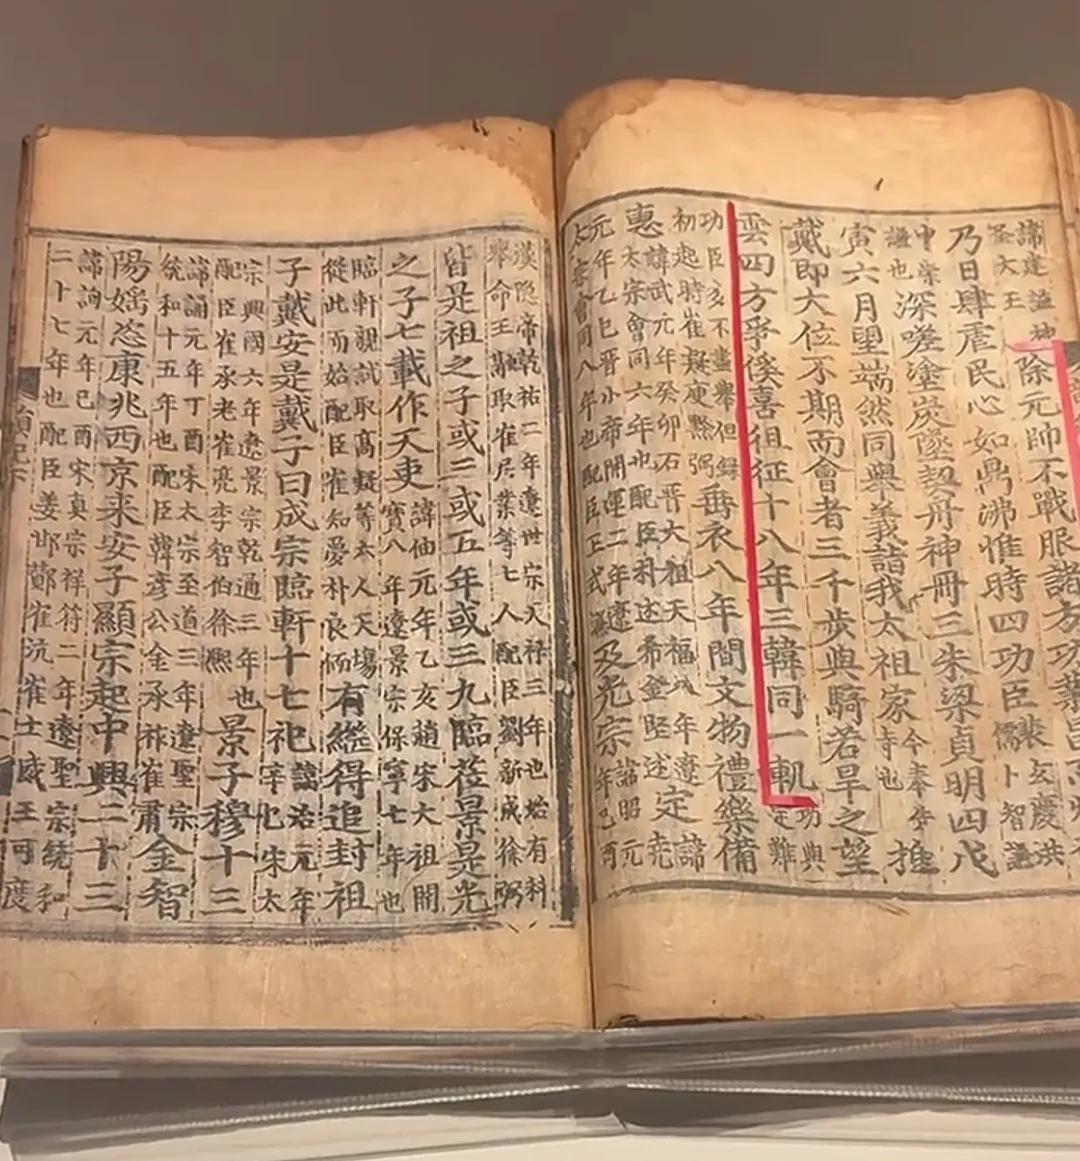 諱建謚神
圣大王
除元帥不戰服諸方功業昌高
乃日肆虐民心如鼎沸惟時四功臣
裴玄慶洪
儒卜智謙
申崇
謙也
深嗟塗炭墜契丹神冊三朱梁貞明四戊
寅六月望端然同舉義詣我太祖家
今奉
寺也
推
戴即大位不期而會者三千步與騎若旱之望
雲四方爭徯喜徂征十八年三韓同一軌
功與
定難
功臣多不盡舉但録
初起時崔凝庾黔弼
垂衣八年間文物禮樂備
惠
諱武元年癸卯石晋大祖天福八年遼
太宗會同六年也配臣朴述希金堅述
定
諱
堯
元年乙巳晋小帝開運二年遼
太宗會同八年也配臣王式廉
及光宗
諱昭元
年己酉
漢隐帝乾祐二年遼世宗天祿三年也始有科
舉命王融取崔居業等七人配臣劉新成徐弼
皆是祖之子或三或五年或三九臨莅景是光
之子七載作天吏
諱伷元年乙亥趙宋大祖開
寶八年遼景宗保寧七年也
臨軒親試取高凝等本人天場
從此而始配臣崔知夢朴良柔
有緦得追封祖
子戴安是戴子曰成宗臨軒十七祀
諱治元年
辛巳宋太
宗興國六年遼景宗乾通三年也
配臣崔承老崔亮李智伯徐熙
景子穆十三
諱誦元年丁酉宋太宗至道三年遼聖宗
統和十五年也配臣韓彦公金承祚崔肅
金智
陽媱恣康兆西京来安子顯宗起中興二十三
諱詢元年己酉宋真宗祥符二年遼聖宗統和
二十七年也配臣姜邯䣭崔沆崔士威王可度